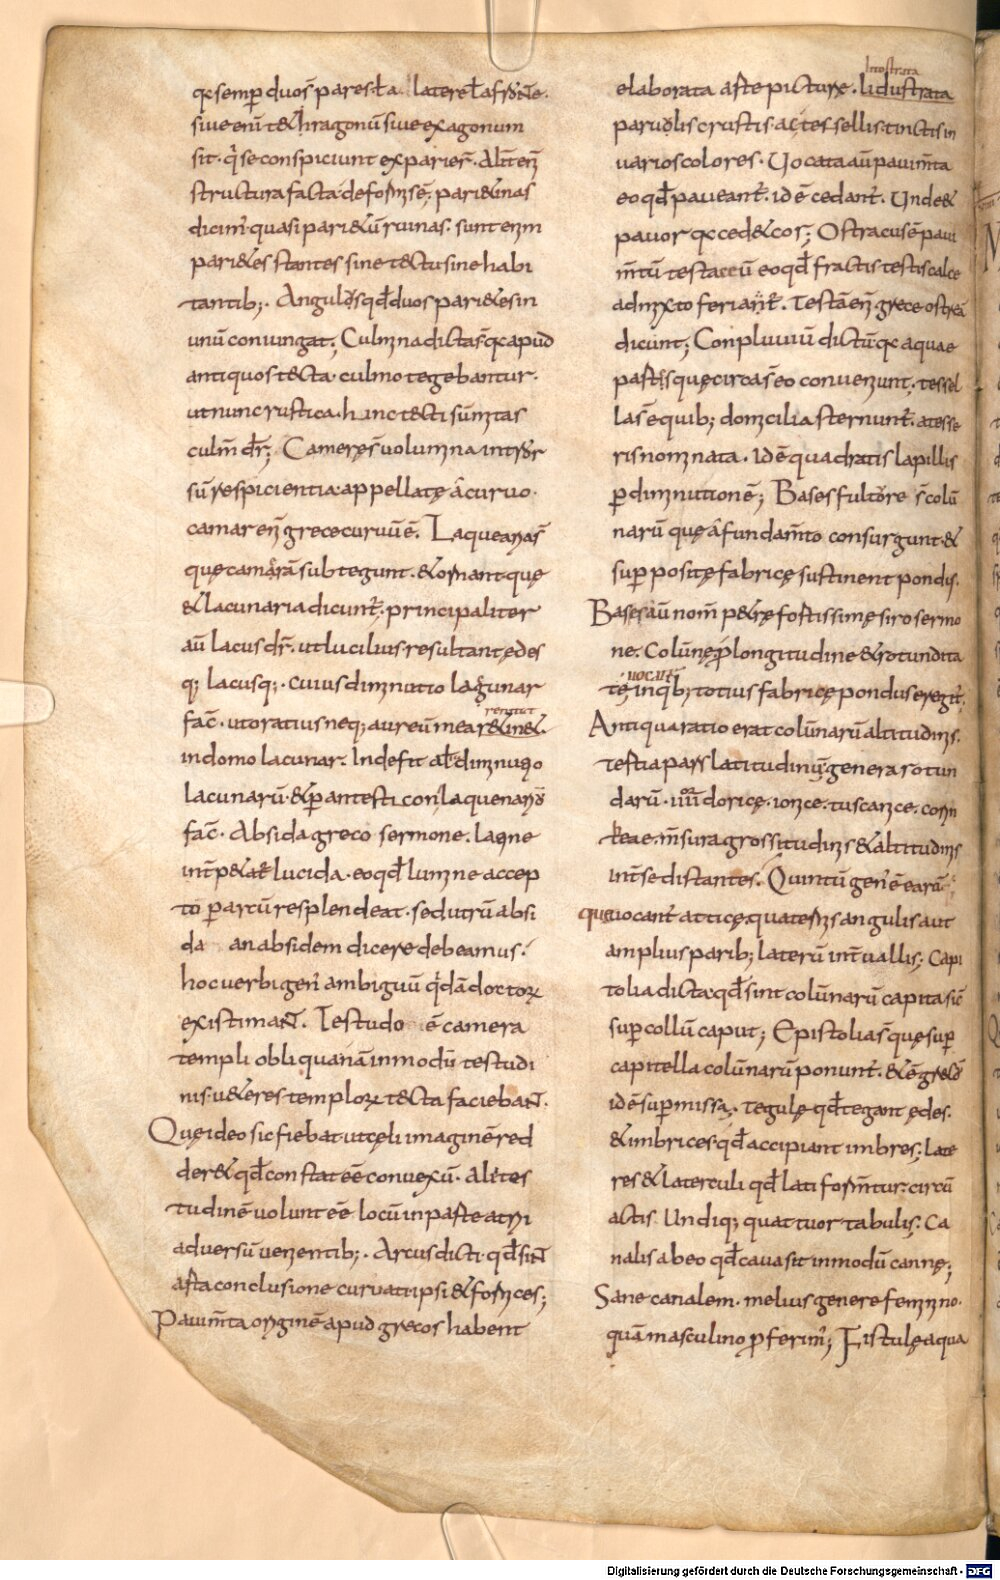 qꝛ semꝑ duos̄ pares· ł a latere ł a fronte·
siue eni᷒ t&hragonū siue exagonum
sit· q᷒ se conspiciunt ex paries·
structura facta deformis ē; pari&inas
dicim᷒ quasi pari&ū ruinas· sunt enim
pari&es stantes sine tecto sine habi
tantib;· Angulus qđ duos pari&es in
unū coniungat; Culmina dicta s̄ qꝛ apud
antiquos tecta culmo tegebantur·
ut nunc rustica· hinc tecti sūmitas
culm̄ dr̄; Camerę s̄ uolumina introrsū
respicientia appellatę a curuo·
camar enī grece curuū ē. Laquearia s̄
quę camarā subtegunt· & ornant quę
& lacunaria dicunt᷒· principaliter
aū lacus dr̄· ut lucilius resultant ędes
q; lacusq;· cuius diminutio lagunar
fac̄· ut oratius neq; aureū mea renidet
in domo lacunar· Inde fit alđ diminutio
lacunarū· & ꝑ antesti con laquearius
fac̄· Absida greco sermone· latine
int̄p&at᷒ lucida· eo qđ lumine accep
to ꝑ arcū resplendeat· sed utrū absi
da an absidem dicere debeamus·
hoc uerbi gen᷒ ambiguū q᷒dā doctorꝝ
existimant. Testudo ē camera
templi obliqua nā in modū testudi
nis· u&eres templorꝝ tecta faciebant·
Quę ideo sic fiebat ut cęli imaginē red
der& qđ constat eē conuexū· Alii tes
tudinē uolunt eē locū in parte atrii
aduersū uenientib;· Arcus dicti qđ sint
arta conclusione curuati ipsi & fornices;
Pauim̄ta originē apud grecos habent
elaborata arte picturę· lidustrata
lithostrata
paruolis crustis ac tessellis tinctis in
uarios colores· Uocata aū pauim̄ta
eo qđ paueant᷒· id ē cedant᷒· Unde &
pauor qꝛ ced& cor; Ostracus ē paui
m̄tū testaceū eo qđ fractis testis calce
admixto feriant᷒. Testā enī grece ostra
dicunt; Conpluuiū dictū qꝛ aquae
partes quę circa s̄ eo conueniunt· tessel
la s̄ e quib; domicilia sternunt᷒· a tesse
ris nominata· id ē quadratis lapillis
ꝑ diminutionē; Bases fulturę s̄ colū
narū quę a fundam̄to consurgunt &
suꝑ positę fabricę sustinent pondus·
Bases aū nom̄ p&rę fortissimę siro sermo
ne. Colūnę ꝑ longitudine & rotundita
te uocatę inq᷒b; totius fabricę pondus erigit᷒;
Antiqua ratio erat colūnarū altitudinis·
tertia pars latitudinū· genera rotun
darū· iiii dorice· ionice· tuscanice· corin
theae· m̄sura grossitudinis & altitudinis
int̄ se distantes. Quintū gen᷒ ē earū
que uocant᷒ atticę quaternis angulis aut
amplius parib; laterū int̄uallis; Capi
tolia dicta qđ sint colūnarū capita sic̄
suꝑ collū caput; Epistolia s̄ quę suꝑ
capitella colūnarū ponunt᷒· & ē grecū
id ē suꝑ missa· tegulę qđ tegant ędes·
& imbrices qđ accipiant imbres; late
res & laterculi qđ lati form̄tur· circū
actis Undiq; quattuor tabulis; Ca
nalis ab eo qđ caua sit in modū cannę;
Sane canalem· melius genere feminino·
quā masculino ꝓferim᷒; Fistulę aqua